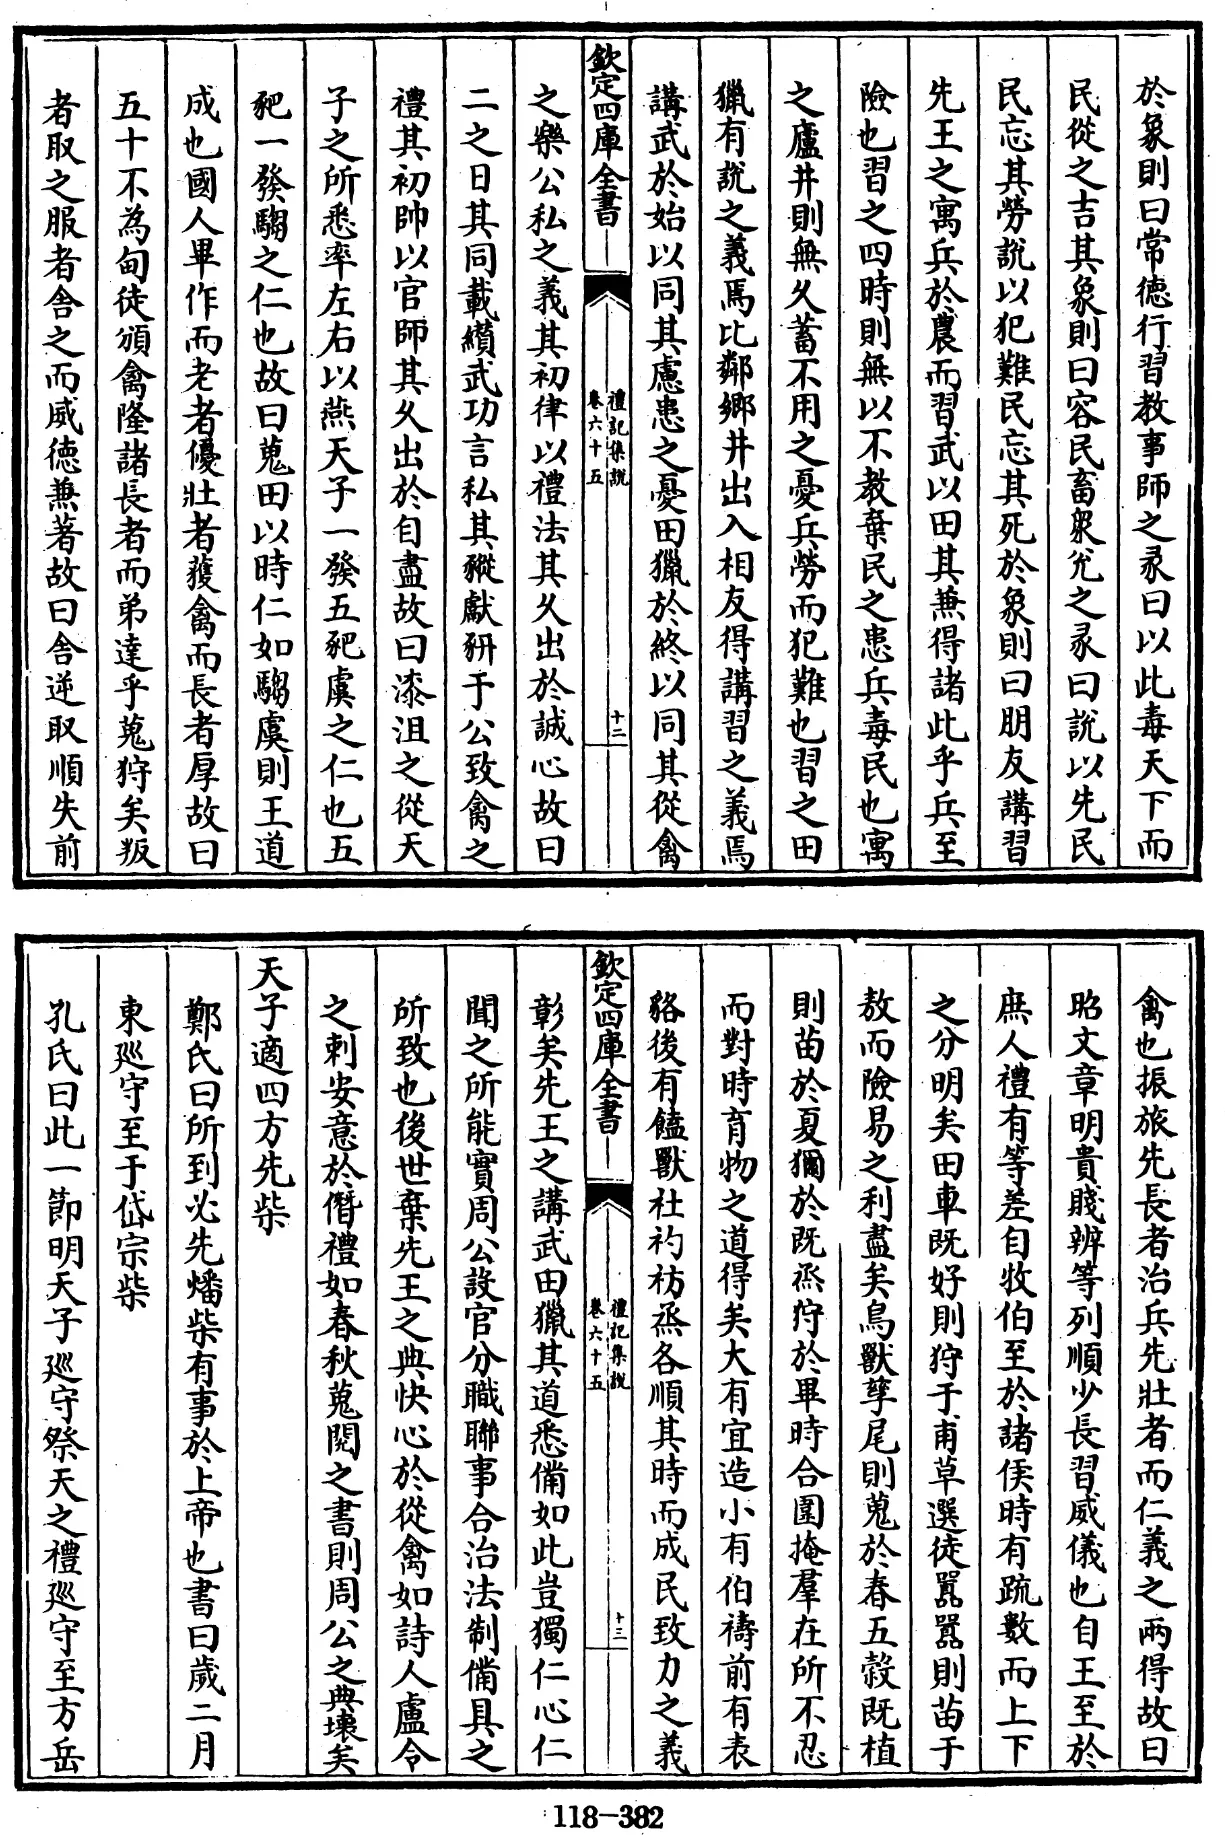 於象則曰常德行習教事師之彖曰以此毒天下而
民從之吉其象則曰容民畜衆兊之彖曰説以先民
民忘其勞説以犯難民忘其死於象則曰朋友講習
先王之寓兵於農而習武以田其兼得諸此乎兵至
險也習之四時則無以不教棄民之患兵毒民也寓
之廬井則無久蓄不用之憂兵勞而犯難也習之田
獵有説之義焉比鄰鄉井出入相友得講習之義焉
講武於始以同其慮患之憂田獵於終以同其從禽
欽定四庫全書
禮記集説
卷六十五
十二
之樂公私之義其初律以禮法其久出於誠心故曰
二之日其同載纘武功言私其豵獻豜于公致禽之
禮其初帥以官師其久出於自盡故曰漆沮之從天
子之所悉率左右以燕天子一發五豝虞之仁也五
豝一發騶之仁也故曰蒐田以時仁如騶虞則王道
成也國人畢作而老者優壯者獲禽而長者厚故曰
五十不為甸徒頒禽隆諸長者而弟達乎蒐狩矣叛
者取之服者舍之而威德兼著故曰舍逆取順失前
禽也振旅先長者治兵先壯者而仁義之兩得故曰
昭文章明貴賤辨等列順少長習威儀也自王至於
庶人禮有等差自牧伯至於諸侯時有疏數而上下
之分明矣田車既好則狩于甫草選徒囂囂則苗于
敖而險易之利盡矣鳥獸孳尾則蒐於春五穀既植
則苗於夏獮於既烝狩於畢時合圍掩羣在所不忍
而對時育物之道得矣大有宜造小有伯禱前有表
貉後有饁獸社礿祊烝各順其時而成民致力之義
欽定四庫全書
禮記集説
卷六十五
十三
彰矣先王之講武田獵其道悉備如此豈獨仁心仁
聞之所能實周公設官分職聯事合治法制備具之
所致也後世棄先王之典快心於從禽如詩人盧令
之刺安意於僭禮如春秋蒐閱之書則周公之典壞矣
天子適四方先柴
鄭氏曰所到必先燔柴有事於上帝也書曰歲二月
東廵守至于岱宗柴
孔氏曰此一節明天子廵守祭天之禮廵守至方岳
118-382